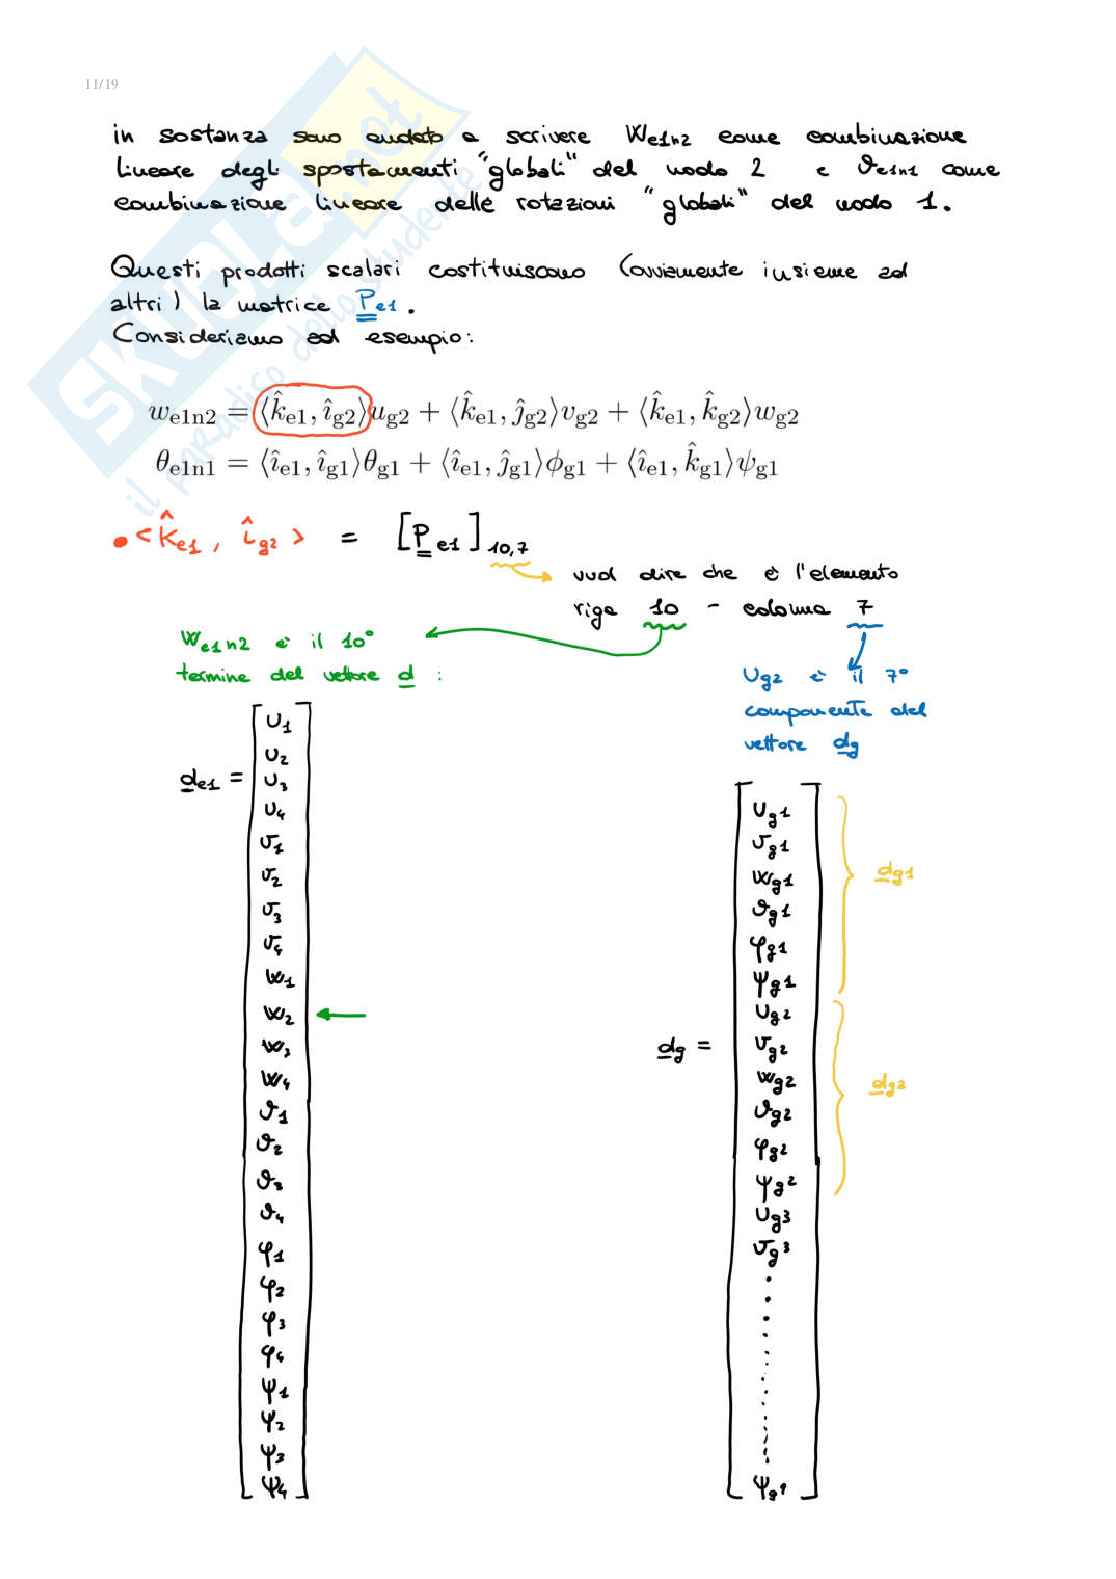 11/19
in sostanza sono andato a scrivere We1n2 come combinazione
lineare degli spostamenti "globali" del nodo 2 e ϑe1n1 come
combinazione lineare delle rotazioni "globali" del nodo 1.
Questi prodotti scalari costituiscono (ovviamente insieme ad
altri) la matrice Pe1.
Consideriamo ad esempio:
we1n2 = ⟨k̂e1, îg2⟩ug2 + ⟨k̂e1, ĵg2⟩vg2 + ⟨k̂e1, k̂g2⟩wg2
θe1n1 = ⟨îe1, îg1⟩θg1 + ⟨îe1, ĵg1⟩ϕg1 + ⟨îe1, k̂g1⟩ψg1
• <k̂e1, îg2> = [Pe1]10,7
vuol dire che è l'elemento
riga 10 - colonna 7
We1n2 è il 10°
termine del vettore d :
Ug2 è il 7°
componente del
vettore dg
de1 =
U1
U2
U3
U4
V1
V2
V3
V4
W1
W2
W3
W4
ϑ1
ϑ2
ϑ3
ϑ4
φ1
φ2
φ3
φ4
ψ1
ψ2
ψ3
ψ4
dg =
Ug1
Vg1
Wg1
ϑg1
φg1
ψg1
Ug2
Vg2
Wg2
ϑg2
φg2
ψg2
Ug3
Vg3
dg1
dg2
SKUOLA.net
il paradiso dello studente